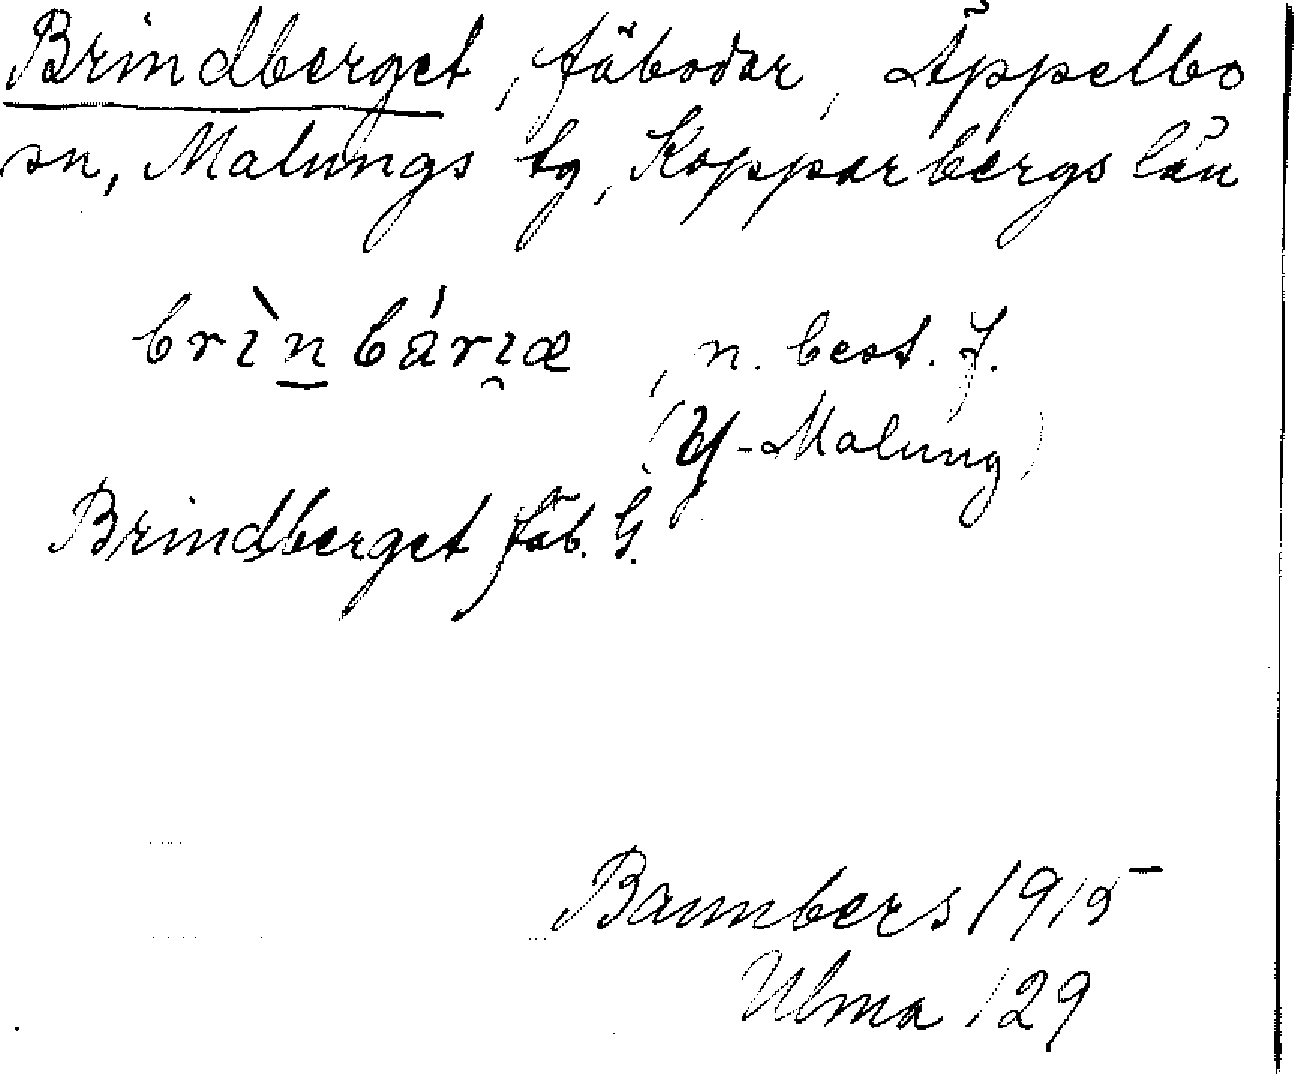 Brindberget, fäbodar, Äppelbo
sn, Malungs tg, Kopparbergs län
brìn̲bárı̯æ, n. best. f.
(Y-Malung)
Brindberget fäb. G.
Bannbers 1915
Ulma 129